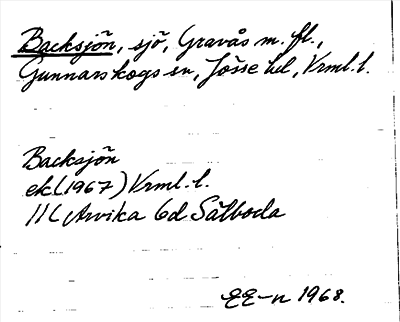 Backsjön, sjö, Gravås m. fl.,
Gunnarskogs sn, Jösse hd, Vrml. l.
Backsjön
ek (1967) Vrml. l.
11C Arvika 6d Sälboda
EE-n 1968.